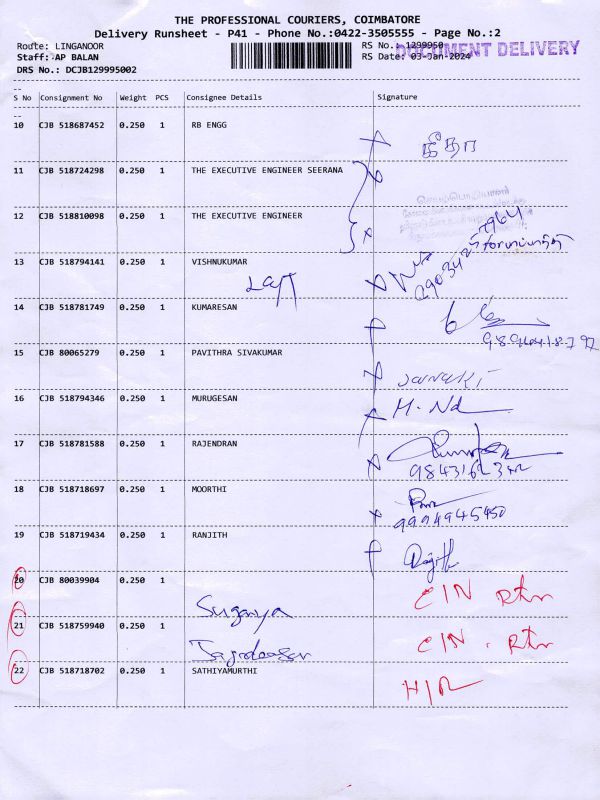 THE PROFESSIONAL COURIERS, COIMBATORE
Delivery Runsheet - P41 - Phone No.:0422-3505555 - Page No.:2
Route: LINGANOOR RS No.: 1299950 DOCUMENT DELIVERY
Staff: AP BALAN RS Date: 03-Jan-2024
DRS No.: DCJB129995002
--
S No Consignment No Weight PCS Consignee Details Signature
--
10 CJB 518687452 0.250 1 RB ENGG கீதா
11 CJB 518724298 0.250 1 THE EXECUTIVE ENGINEER SEERANA
12 CJB 518810098 0.250 1 THE EXECUTIVE ENGINEER
13 CJB 518794141 0.250 1 VISHNUKUMAR
14 CJB 518781749 0.250 1 KUMARESAN
15 CJB 80065279 0.250 1 PAVITHRA SIVAKUMAR
16 CJB 518794346 0.250 1 MURUGESAN
17 CJB 518781588 0.250 1 RAJENDRAN
18 CJB 518718697 0.250 1 MOORTHI
9994945450
19 CJB 518719434 0.250 1 RANJITH
20 CJB 80039904 0.250 1 Suganya CIN Rtn
21 CJB 518759940 0.250 1 CIN. Rtn
22 CJB 518718702 0.250 1 SATHIYAMURTHI